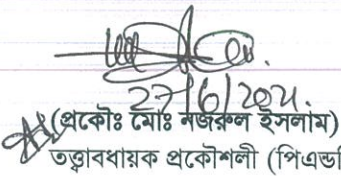 27/6/2021.
(প্রকৌঃ মোঃ নজরুল ইসলাম)
তত্ত্বাবধায়ক প্রকৌশলী (পিএন্ড